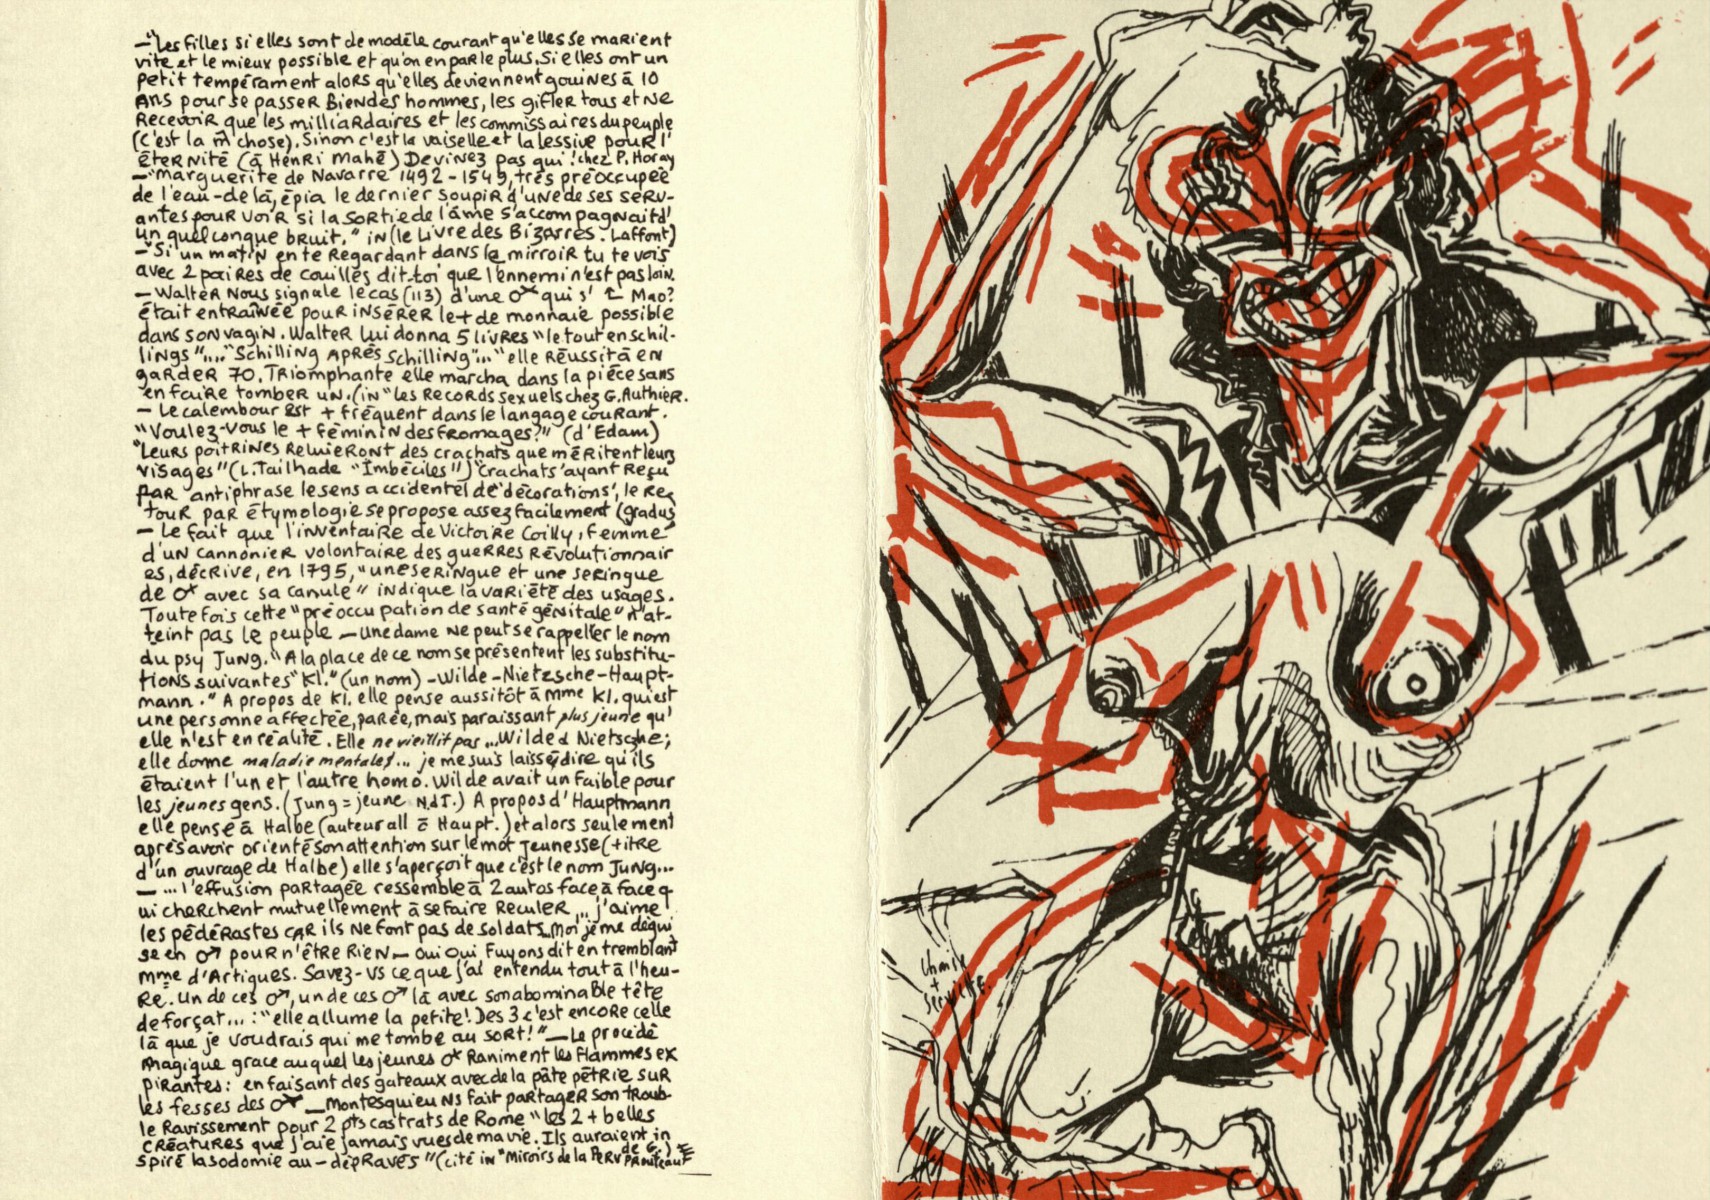 —"Les filles si elles sont de modèle courant qu'elles se marient
vite et le mieux possible et qu'on en parle plus. Si elles ont un
petit tempérament alors qu'elles deviennent gouines à 10
ans pour se passer bien des hommes, les gifler tous et ne
recevoir que les milliardaires et les commissaires du peuple
(c'est la m̂ chose). Sinon c'est la vaiselle et la lessive pour l'
éternité (à Henri Mahé) Devinez pas qui ! chez P. Horay
—"Marguerite de Navarre 1492 - 1549, très préoccupée
de l'eau-delà, épia le dernier soupir d'une de ses serv-
antes pour voir si la sortie de l'âme s'accompagnait d'
un quelconque bruit." in (le Livre des Bizarres. Laffont)
—"Si un matin en te regardant dans le mirroir tu te vois
avec 2 paires de couilles dit-toi que l'ennemi n'est pas loin.
— Walter nous signale le cas (113) d'une ♀ qui s' Mao?
était entraînée pour insérer le + de monnaie possible
dans son vagin. Walter lui donna 5 livres "le tout en schil-
lings"..." Schilling après schilling"..."elle réussit à en
garder 70. Triomphante elle marcha dans la pièce sans
en faire tomber un. (in "les Records sexuels chez G. Authier.
— Le calembour est + fréquent dans le langage courant.
"Voulez-vous le + féminin des fromages?" (d'Edam)
"Leurs poitrines reluieront des crachats que méritent leurs
visages" (L. Tailhade "Imbéciles") "Crachats' ayant reçu
par antiphrase le sens accidentel de 'décorations', le re
tour par étymologie se propose assez facilement (gradus
— Le fait que l'inventaire de Victoire Coilly, femme
d'un cannonier volontaire des guerres révolutionnair
es, décrive, en 1795, "une seringue et une seringue
de ♀ avec sa canule" indique la variété des usages.
Toutefois cette "préoccupation de santé génitale" n'at-
teint pas le peuple — une dame ne peut se rappeller le nom
du psy Jung. "A la place de ce nom se présentent les substitu-
tions suivantes "Kl." (un nom) - Wilde - Nietzsche - Haupt-
mann." A propos de Kl. elle pense aussitôt à Mme Kl. qui est
une personne affectée, parée, mais paraissant plus jeune qu'
elle n'est en réalité. Elle ne vieillit pas ... Wilde & Nietsche;
elle donne maladie mentale!... je me suis laissé dire qu'ils
étaient l'un et l'autre homo. Wilde avait un faible pour
les jeunes gens. (Jung = jeune N.d.T.) A propos d'Hauptmann
elle pense à Halbe (auteur all c̄ Haupt.) et alors seulement
après avoir orienté son attention sur le mot jeunesse (titre
d'un ouvrage de Halbe) elle s'aperçoit que c'est le nom Jung...
— ... l'effusion partagée ressemble à 2 autos face à face q-
ui cherchent mutuellement à se faire reculer ... j'aime
les pédérastes car ils ne font pas de soldats. Moi je me dégui
se en ♂ pour n'être rien — Oui oui fuyons dit en tremblant
mme d'Artigues. Savez-vs ce que j'ai entendu tout à l'heu-
re. Un de ces ♂, un de ces ♂ là avec son abominable tête
de forçat... : "elle allume la petite! Des 3 c'est encore celle
là que je voudrais qui me tombe au sort!" — Le procédé
magique grace auquel les jeunes ♀ raniment les flammes ex
pirantes : en faisant des gateaux avec de la pâte pétrie sur
les fesses des ♀ — Montesquieu ns fait partager son troub-
le ravissement pour 2 pts castrats de Rome "les 2 + belles
créatures que j'aie jamais vues de ma vie. Ils auraient in
spiré la sodomie au - dépravés" (cité in "Miroirs de la Perv de G. Prouteau)